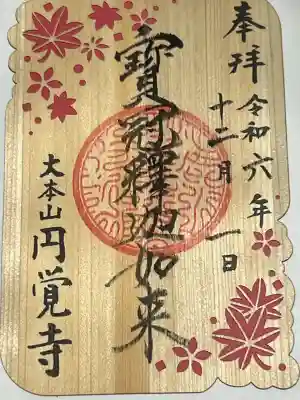 奉拝
令和六年
十二月一日
寶冠釋迦如来
大本山円覚寺